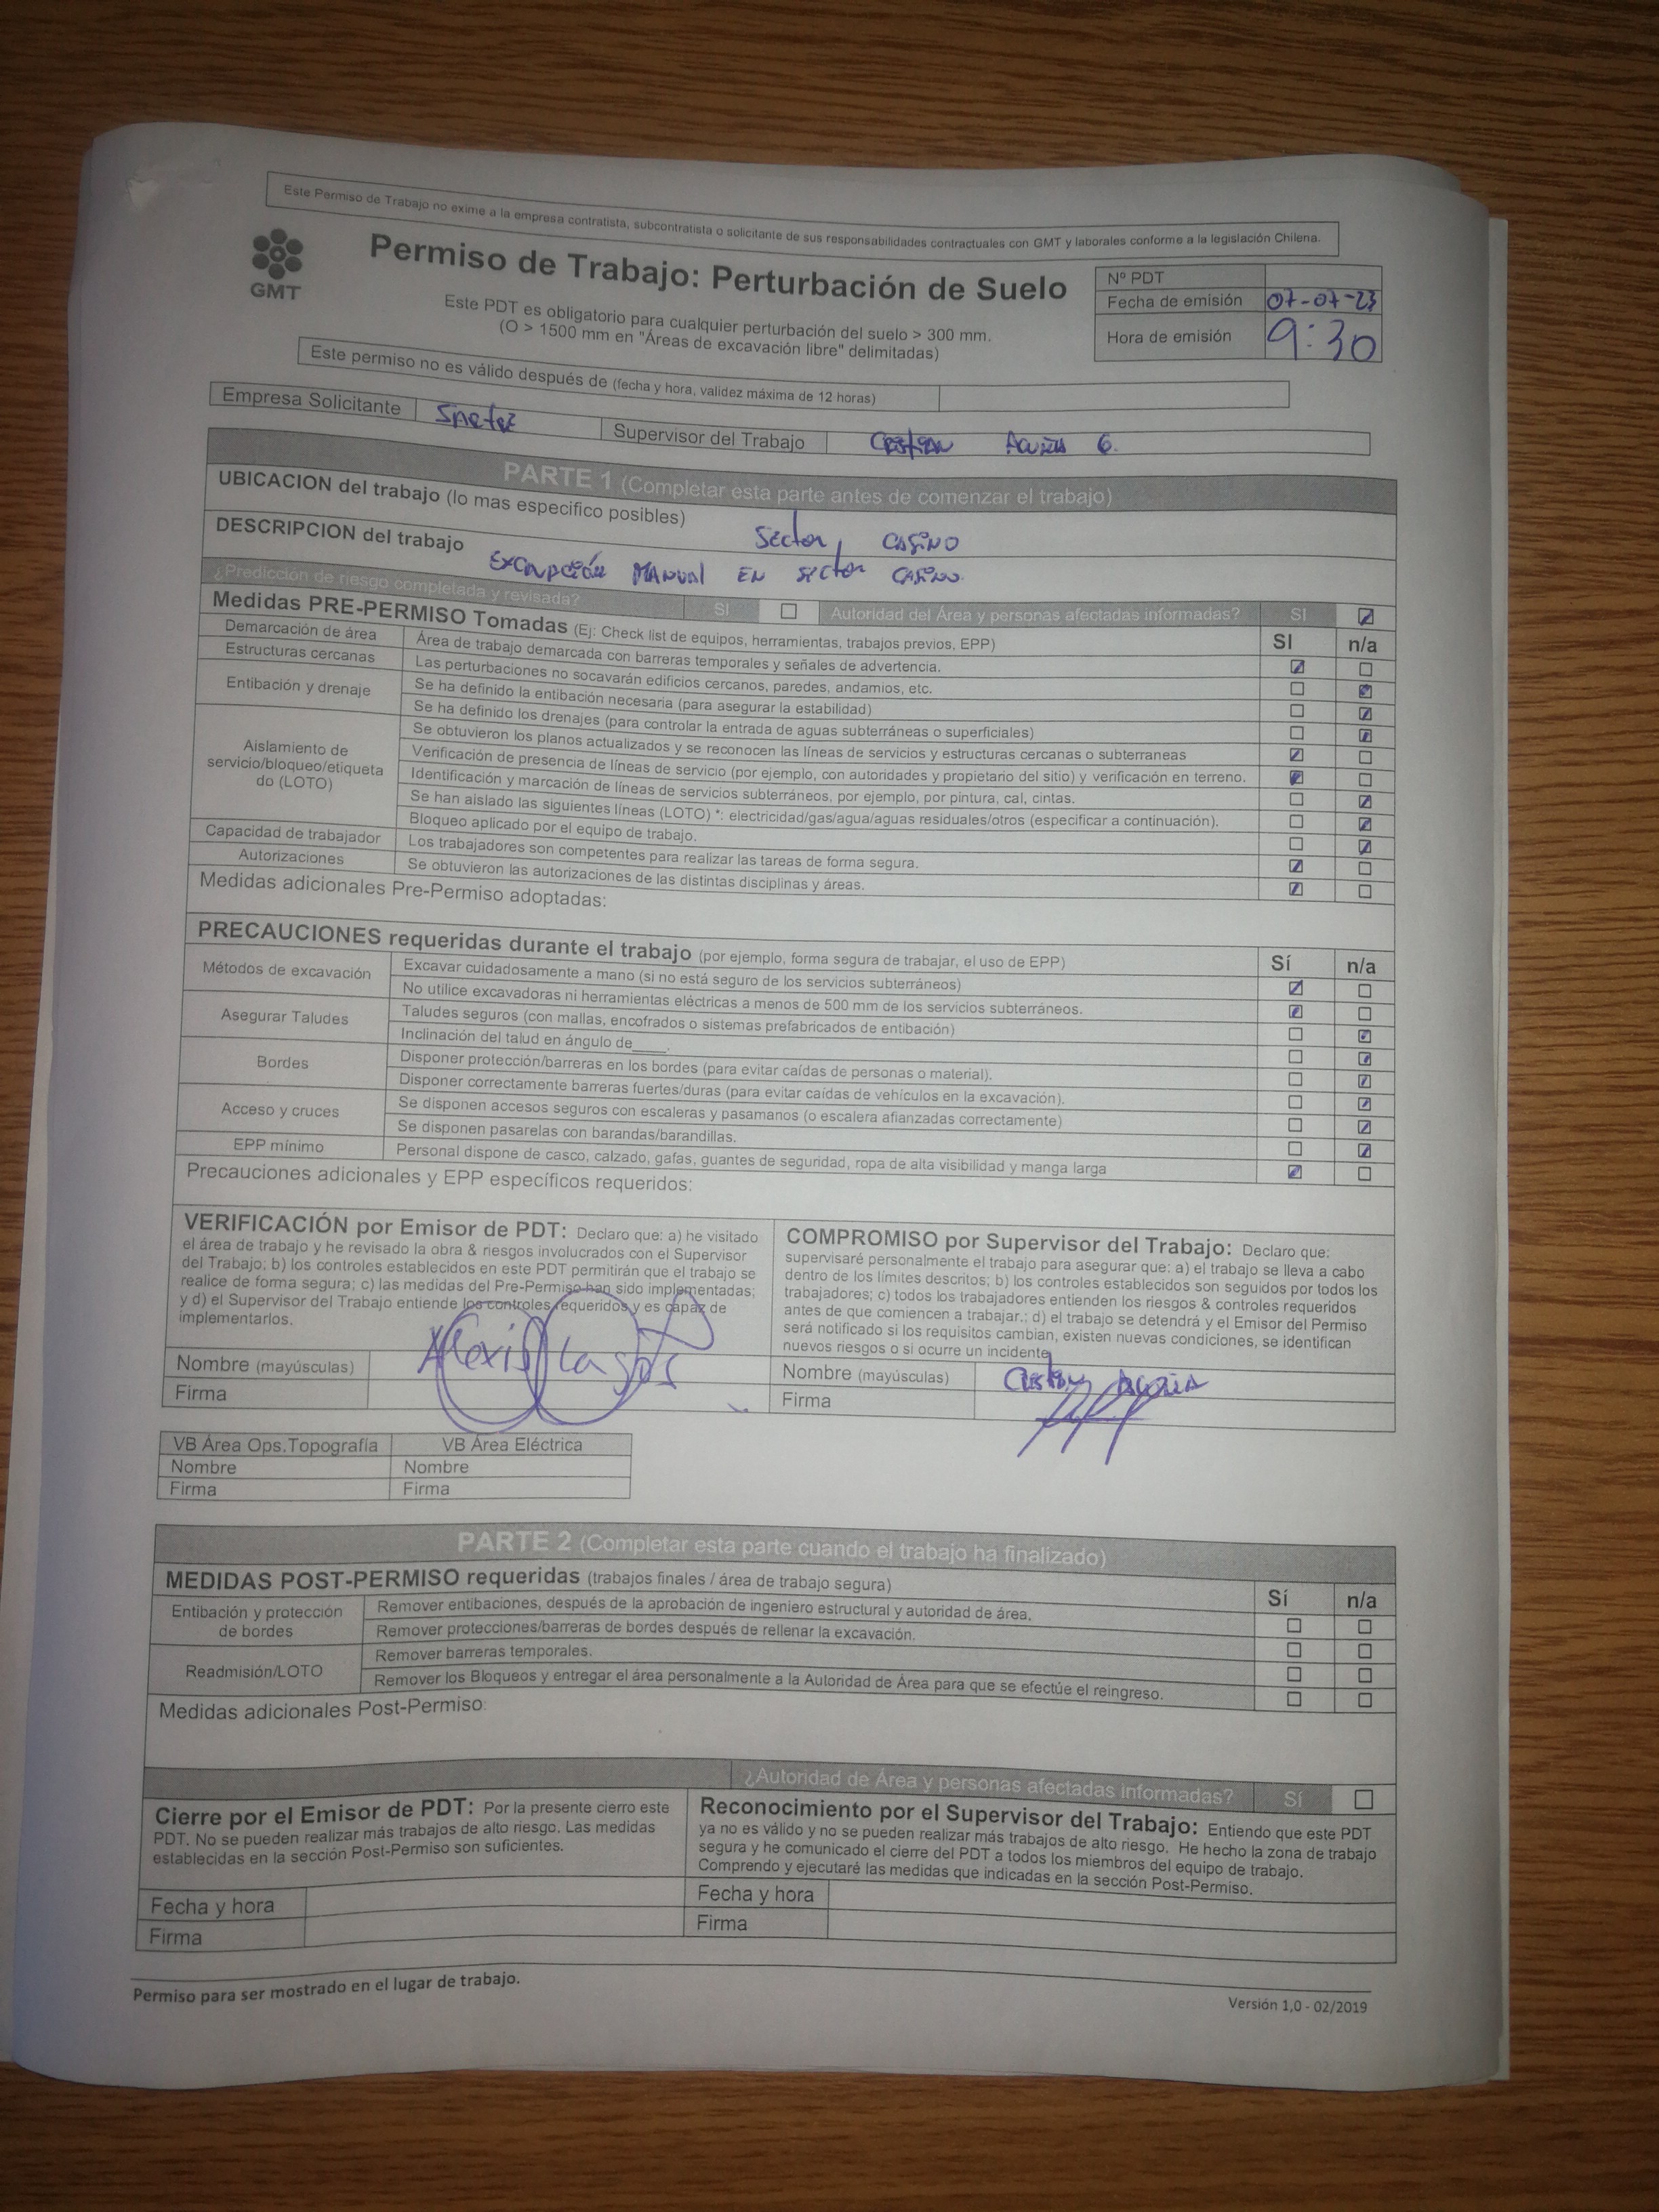 Este Permiso de Trabajo no exime a la empresa contratista, subcontratista o solicitante de sus responsabilidades contractuales con GMT y laborales conforme a la legislación Chilena.
GMT
Permiso de Trabajo: Perturbación de Suelo
Este PDT es obligatorio para cualquier perturbación del suelo > 300 mm.
(O > 1500 mm en "Áreas de excavación libre" delimitadas)
Nº PDT
Fecha de emisión 07-07-23
Hora de emisión 9:30
Este permiso no es válido después de (fecha y hora, validez máxima de 12 horas)
Empresa Solicitante
Supervisor del Trabajo Cristian Acuña G.
PARTE 1 (Completar esta parte antes de comenzar el trabajo)
UBICACION del trabajo (lo mas especifico posibles) Sector, CASINO
DESCRIPCION del trabajo EXCAVACIÓN MANUAL EN SECTOR CASINO.
¿Predicción de riesgo completada y revisada? SI
Autoridad del Área y personas afectadas informadas? SI
Medidas PRE-PERMISO Tomadas (Ej: Check list de equipos, herramientas, trabajos previos, EPP) SI n/a
Demarcación de área Área de trabajo demarcada con barreras temporales y señales de advertencia.
Estructuras cercanas Las perturbaciones no socavarán edificios cercanos, paredes, andamios, etc.
Entibación y drenaje Se ha definido la entibación necesaria (para asegurar la estabilidad)
Se ha definido los drenajes (para controlar la entrada de aguas subterráneas o superficiales)
Aislamiento de servicio/bloqueo/etiquetado (LOTO) Se obtuvieron los planos actualizados y se reconocen las líneas de servicios y estructuras cercanas o subterraneas
Verificación de presencia de líneas de servicio (por ejemplo, con autoridades y propietario del sitio) y verificación en terreno.
Identificación y marcación de líneas de servicios subterráneos, por ejemplo, por pintura, cal, cintas.
Se han aislado las siguientes líneas (LOTO) *: electricidad/gas/agua/aguas residuales/otros (especificar a continuación).
Bloqueo aplicado por el equipo de trabajo.
Capacidad de trabajador Los trabajadores son competentes para realizar las tareas de forma segura.
Autorizaciones Se obtuvieron las autorizaciones de las distintas disciplinas y áreas.
Medidas adicionales Pre-Permiso adoptadas:
PRECAUCIONES requeridas durante el trabajo (por ejemplo, forma segura de trabajar, el uso de EPP) Sí n/a
Métodos de excavación Excavar cuidadosamente a mano (si no está seguro de los servicios subterráneos)
No utilice excavadoras ni herramientas eléctricas a menos de 500 mm de los servicios subterráneos.
Asegurar Taludes Taludes seguros (con mallas, encofrados o sistemas prefabricados de entibación)
Inclinación del talud en ángulo de____.
Bordes Disponer protección/barreras en los bordes (para evitar caídas de personas o material).
Disponer correctamente barreras fuertes/duras (para evitar caídas de vehículos en la excavación).
Acceso y cruces Se disponen accesos seguros con escaleras y pasamanos (o escalera afianzadas correctamente)
Se disponen pasarelas con barandas/barandillas.
EPP mínimo Personal dispone de casco, calzado, gafas, guantes de seguridad, ropa de alta visibilidad y manga larga
Precauciones adicionales y EPP específicos requeridos:
VERIFICACIÓN por Emisor de PDT: Declaro que: a) he visitado
el área de trabajo y he revisado la obra & riesgos involucrados con el Supervisor
del Trabajo; b) los controles establecidos en este PDT permitirán que el trabajo se
realice de forma segura; c) las medidas del Pre-Permiso han sido implementadas;
y d) el Supervisor del Trabajo entiende los controles requeridos y es capaz de
implementarlos.
Nombre (mayúsculas) Alexis Lagos
Firma
COMPROMISO por Supervisor del Trabajo: Declaro que:
supervisaré personalmente el trabajo para asegurar que: a) el trabajo se lleva a cabo
dentro de los límites descritos; b) los controles establecidos son seguidos por todos los
trabajadores; c) todos los trabajadores entienden los riesgos & controles requeridos
antes de que comiencen a trabajar.; d) el trabajo se detendrá y el Emisor del Permiso
será notificado si los requisitos cambian, existen nuevas condiciones, se identifican
nuevos riesgos o si ocurre un incidente
Nombre (mayúsculas) Cristian Acuña
Firma
VB Área Ops.Topografía VB Area Eléctrica
Nombre Nombre
Firma Firma
PARTE 2 (Completar esta parte cuando el trabajo ha finalizado)
MEDIDAS POST-PERMISO requeridas (trabajos finales / área de trabajo segura) Sí n/a
Entibación y protección de bordes Remover entibaciones, después de la aprobación de ingeniero estructural y autoridad de área.
Remover protecciones/barreras de bordes después de rellenar la excavación.
Readmisión/LOTO Remover barreras temporales.
Remover los Bloqueos y entregar el área personalmente a la Autoridad de Área para que se efectúe el reingreso.
Medidas adicionales Post-Permiso:
¿Autoridad de Área y personas afectadas informadas? Sí
Cierre por el Emisor de PDT: Por la presente cierro este
PDT. No se pueden realizar más trabajos de alto riesgo. Las medidas
establecidas en la sección Post-Permiso son suficientes.
Fecha y hora
Firma
Reconocimiento por el Supervisor del Trabajo: Entiendo que este PDT
ya no es válido y no se pueden realizar más trabajos de alto riesgo. He hecho la zona de trabajo
segura y he comunicado el cierre del PDT a todos los miembros del equipo de trabajo.
Comprendo y ejecutaré las medidas que indicadas en la sección Post-Permiso.
Fecha y hora
Firma
Permiso para ser mostrado en el lugar de trabajo.
Versión 1,0 - 02/2019